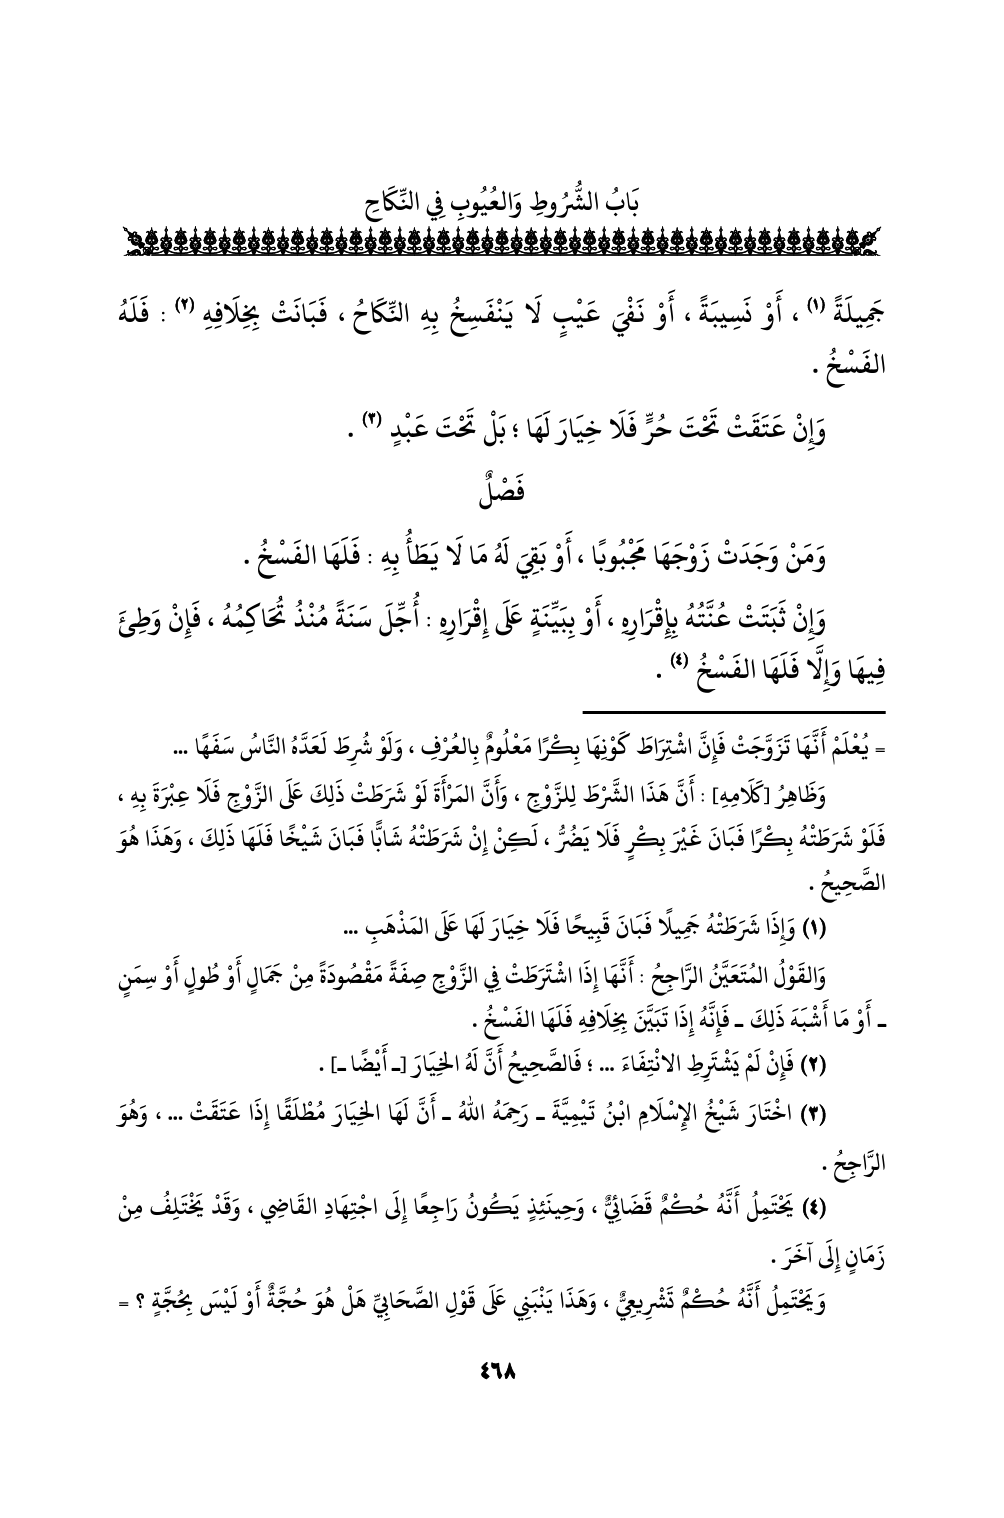 بَابُ الشُّرُوطِ وَالعُيُوبِ فِي النِّكَاحِ
جَمِيلَةً (١) ، أَوْ نَسِيبَةً ، أَوْ نَفْيَ عَيْبٍ لَا يَنْفَسِخُ بِهِ النِّكَاحُ ، فَبَانَتْ بِخِلَافِهِ (٢) : فَلَهُ
الفَسْخُ .
وَإِنْ عَتَقَتْ تَحْتَ حُرٍّ فَلَا خِيَارَ لَهَا ؛ بَلْ تَحْتَ عَبْدٍ (٣) .
فَصْلٌ
وَمَنْ وَجَدَتْ زَوْجَهَا مَجْبُوبًا ، أَوْ بَقِيَ لَهُ مَا لَا يَطَأُ بِهِ : فَلَهَا الفَسْخُ .
وَإِنْ ثَبَتَتْ عُنَّتُهُ بِإِقْرَارِهِ ، أَوْ بِبَيِّنَةٍ عَلَى إِقْرَارِهِ : أُجِّلَ سَنَةً مُنْذُ تُحَاكِمُهُ ، فَإِنْ وَطِئَ
فِيهَا وَإِلَّا فَلَهَا الفَسْخُ (٤) .
= يُعْلَمْ أَنَّهَا تَزَوَّجَتْ فَإِنَّ اشْتِرَاطَ كَوْنِهَا بِكْرًا مَعْلُومٌ بِالعُرْفِ ، وَلَوْ شُرِطَ لَعَدَّهُ النَّاسُ سَفَهًا ...
وَظَاهِرُ [كَلَامِهِ] : أَنَّ هَذَا الشَّرْطَ لِلزَّوْجِ ، وَأَنَّ المَرْأَةَ لَوْ شَرَطَتْ ذَلِكَ عَلَى الزَّوْجِ فَلَا عِبْرَةَ بِهِ ،
فَلَوْ شَرَطَتْهُ بِكْرًا فَبَانَ غَيْرَ بِكْرٍ فَلَا يَضُرُّ ، لَكِنْ إِنْ شَرَطَتْهُ شَابًّا فَبَانَ شَيْخًا فَلَهَا ذَلِكَ ، وَهَذَا هُوَ
الصَّحِيحُ .
(١) وَإِذَا شَرَطَتْهُ جَمِيلًا فَبَانَ قَبِيحًا فَلَا خِيَارَ لَهَا عَلَى المَذْهَبِ ...
وَالقَوْلُ المُتَعَيَّنُ الرَّاجِحُ : أَنَّهَا إِذَا اشْتَرَطَتْ فِي الزَّوْجِ صِفَةً مَقْصُودَةً مِنْ جَمَالٍ أَوْ طُولٍ أَوْ سِمَنٍ
ـ أَوْ مَا أَشْبَهَ ذَلِكَ ـ فَإِنَّهُ إِذَا تَبَيَّنَ بِخِلَافِهِ فَلَهَا الفَسْخُ .
(٢) فَإِنْ لَمْ يَشْتَرِطِ الانْتِفَاءَ ... ؛ فَالصَّحِيحُ أَنَّ لَهُ الخِيَارَ [ـ أَيْضًا ـ] .
(٣) اخْتَارَ شَيْخُ الإِسْلَامِ ابْنُ تَيْمِيَّةَ ـ رَحِمَهُ اللهُ ـ أَنَّ لَهَا الخِيَارَ مُطْلَقًا إِذَا عَتَقَتْ ... ، وَهُوَ
الرَّاجِحُ .
(٤) يَحْتَمِلُ أَنَّهُ حُكْمٌ قَضَائِيٌّ ، وَحِينَئِذٍ يَكُونُ رَاجِعًا إِلَى اجْتِهَادِ القَاضِي ، وَقَدْ يَخْتَلِفُ مِنْ
زَمَانٍ إِلَى آخَرَ .
وَيَحْتَمِلُ أَنَّهُ حُكْمٌ تَشْرِيعِيٌّ ، وَهَذَا يَنْبَنِي عَلَى قَوْلِ الصَّحَابِيِّ هَلْ هُوَ حُجَّةٌ أَوْ لَيْسَ بِحُجَّةٍ ؟ =
٤٦٨